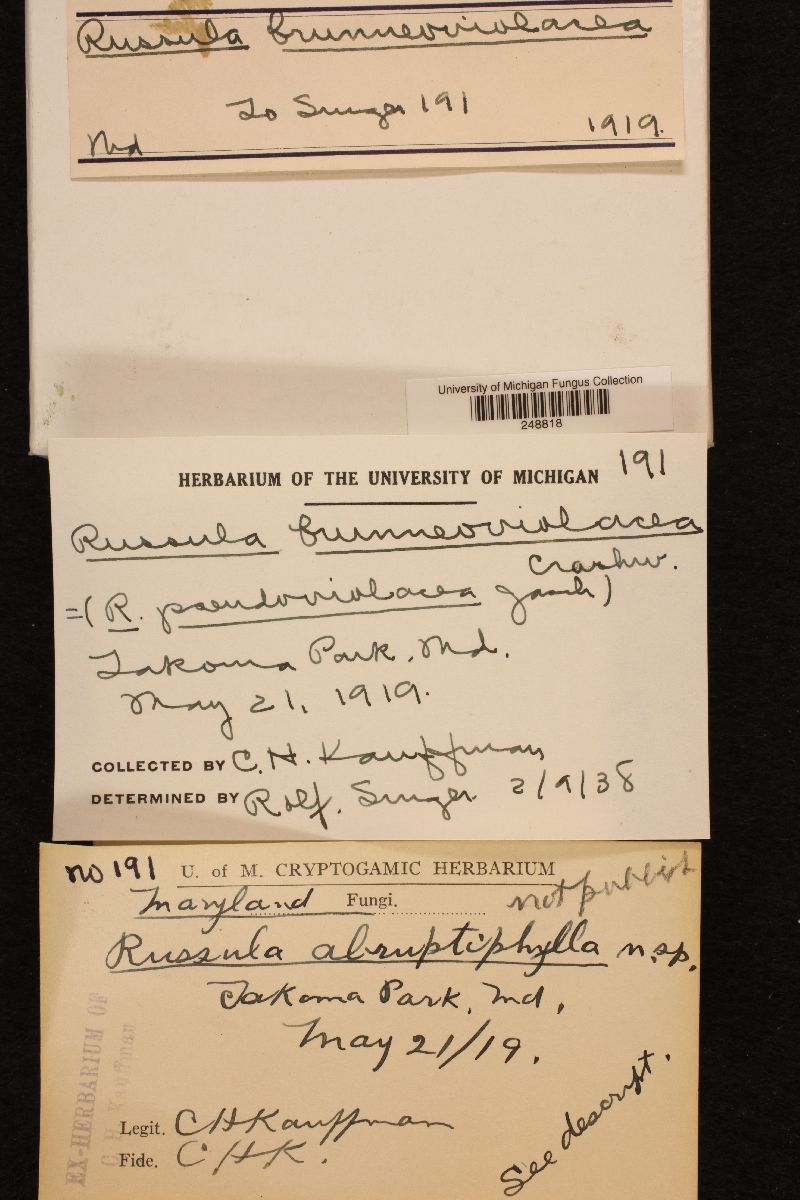 Russula brunneoviolacea
To Singer 191
Md 1919.
University of Michigan Fungus Collection
248818
HERBARIUM OF THE UNIVERSITY OF MICHIGAN 191
Russula brunneoviolacea
Crashw.
=(R. pseudoviolacea Joach)
Takoma Park, Md.
May 21, 1919.
COLLECTED BY C. H. Kauffman
DETERMINED BY Rolf. Singer 2/9/38
no 191 U. of M. CRYPTOGAMIC HERBARIUM
Maryland Fungi. not publish
Russula abruptiphylla n.sp.
Takoma Park, Md,
May 21/19.
See descript.
Legit. CHKauffman
Fide. CHK.
EX-HERBARIUM OF
C H Kauffman